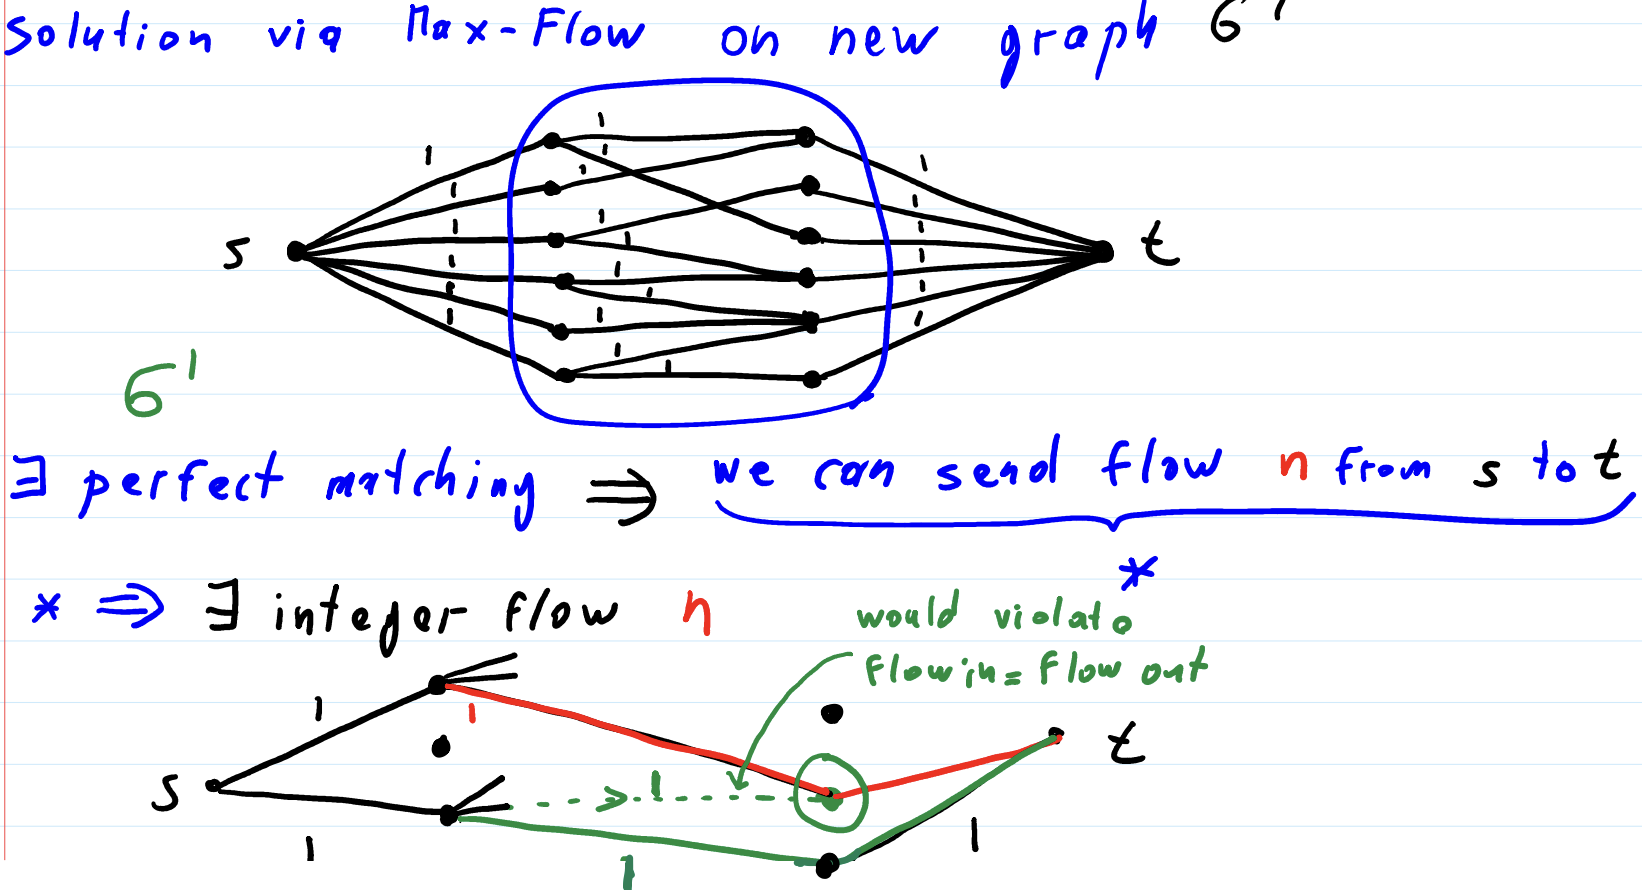 Solution via Max-Flow on new graph G'
1 1 1 1 1 1
1 1 1 1 1 1 1 1 1 1
1 1 1 1 1 1
s t
G'
∃ perfect matching ⇒ we can send flow n from s to t
*
* ⇒ ∃ integer flow n
would violate
Flow in = Flow out
1 1
s 1 t
1 1 1